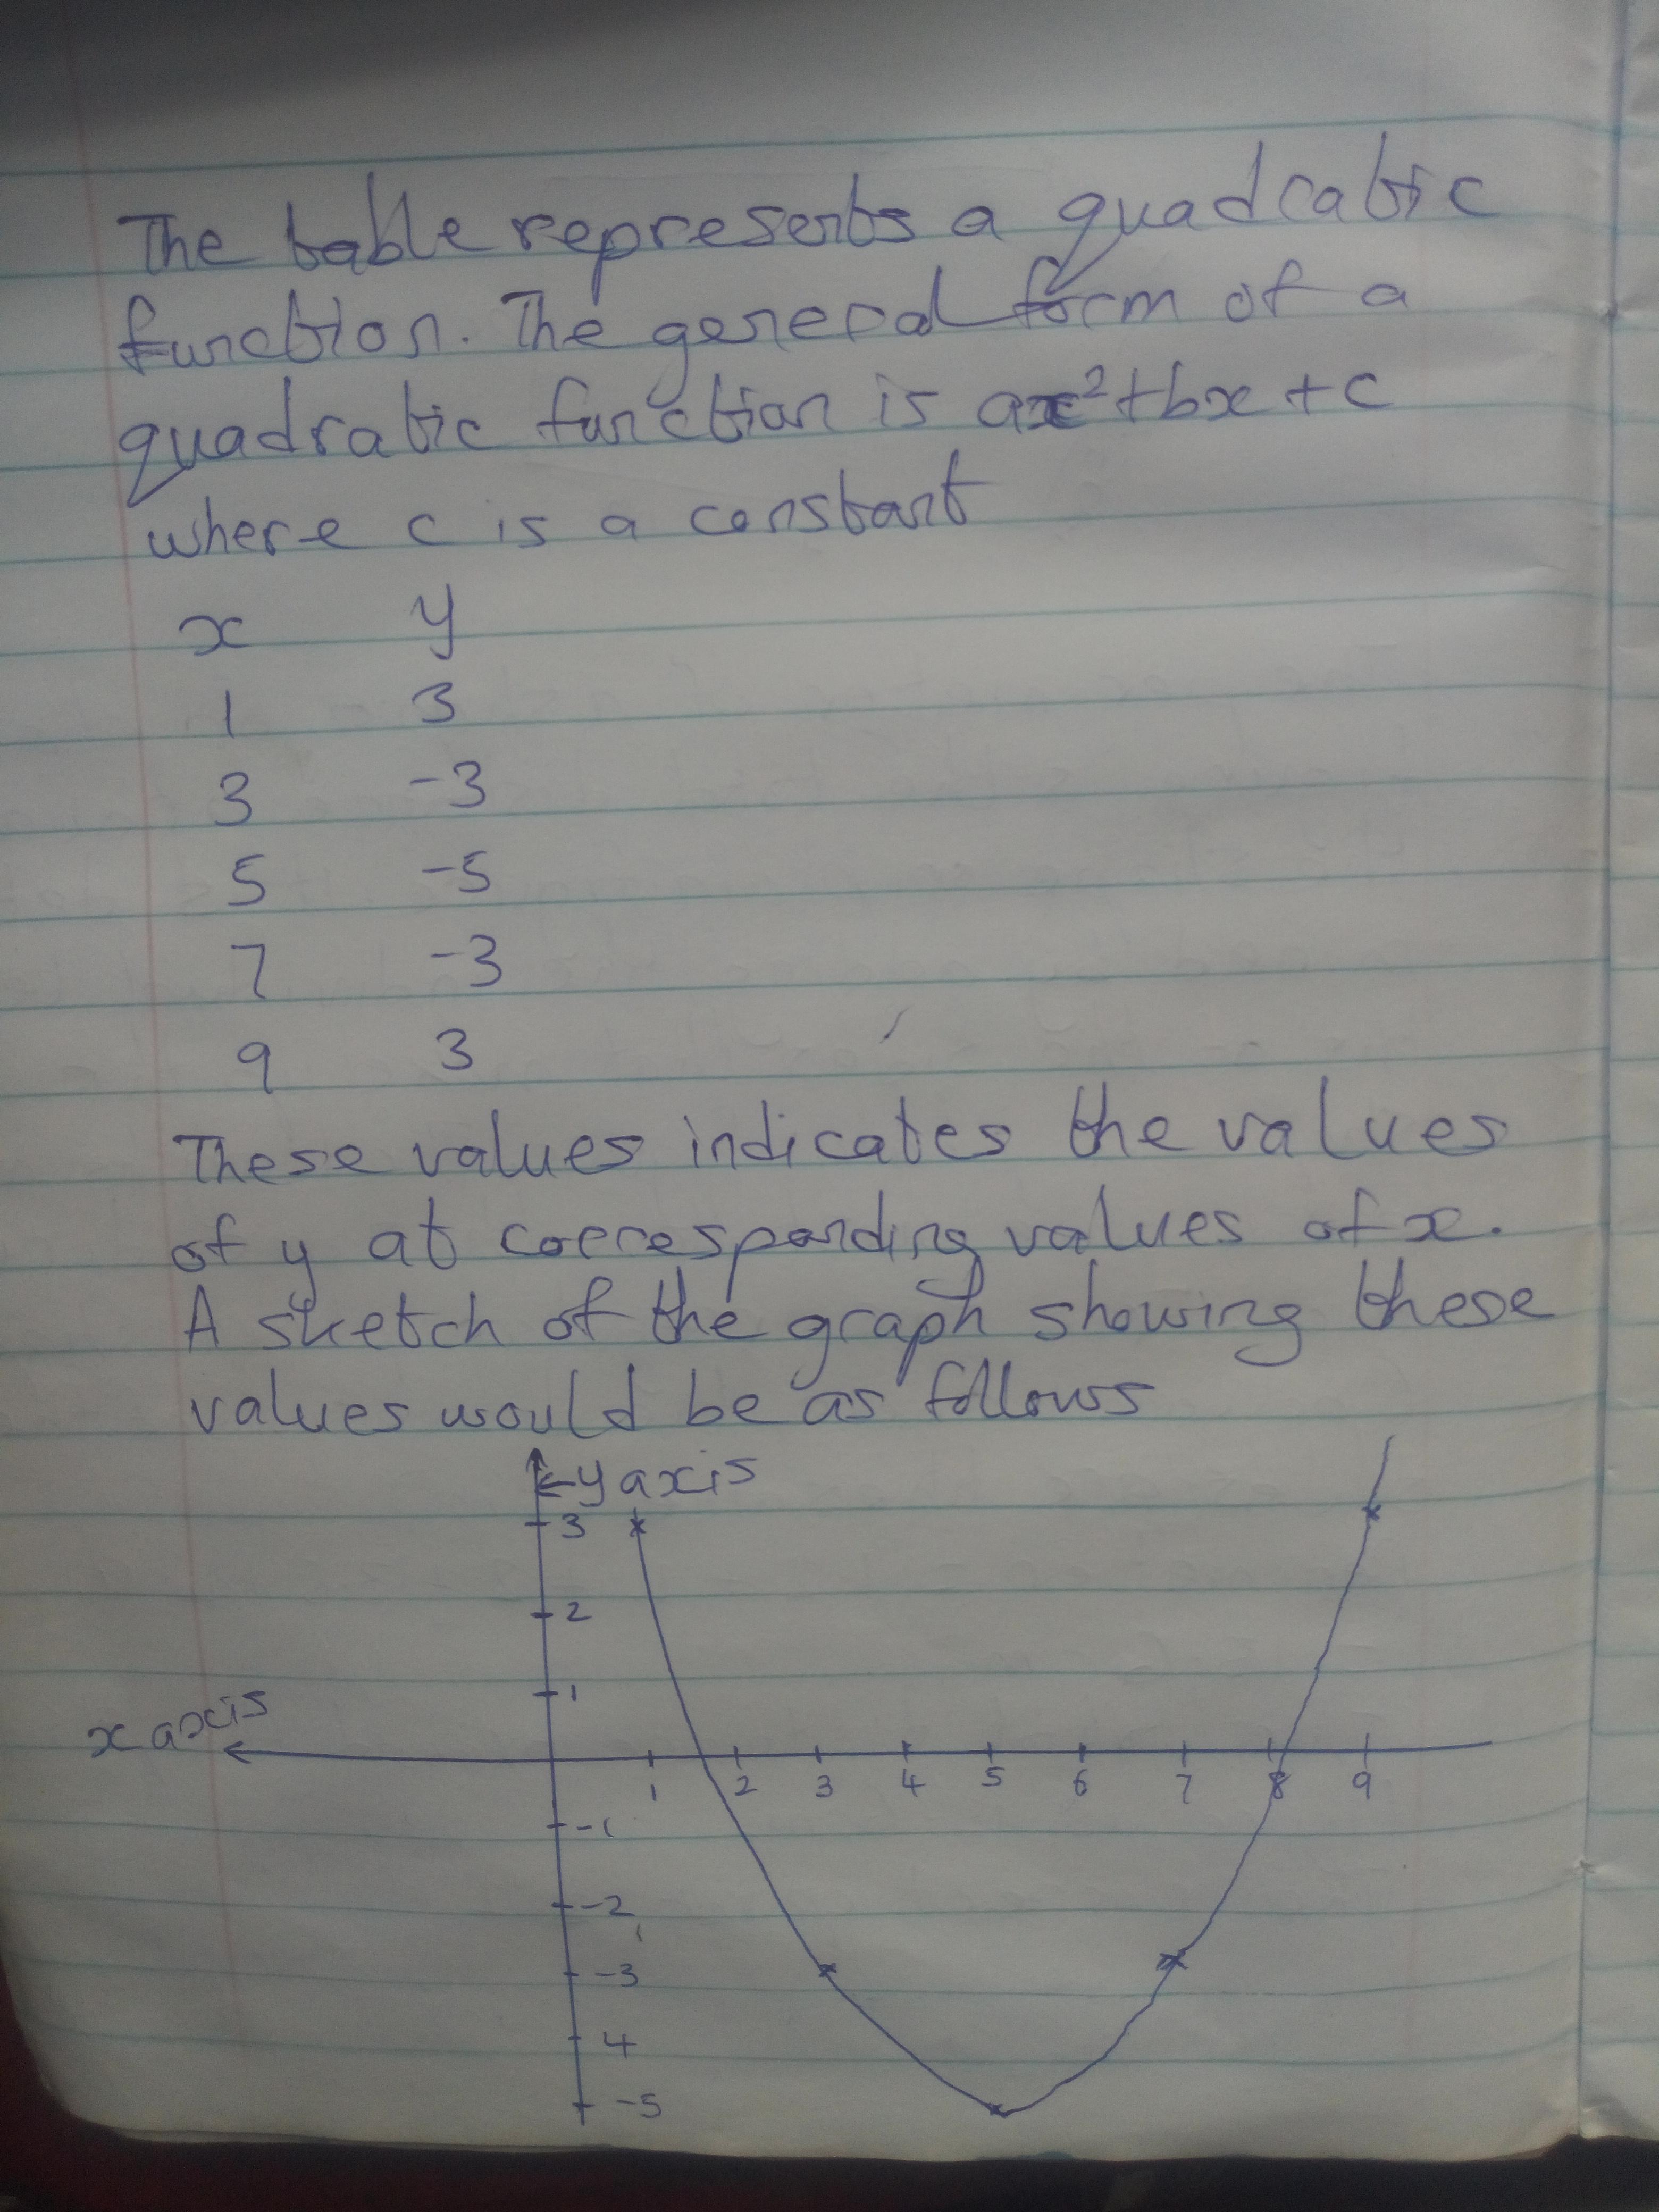 The table represents a quadratic
function. The general form of a
quadratic function is ax²+bx+c
where c is a constant
x y
1 3
3 -3
5 -5
7 -3
9 3
These values indicates the values
of y at corresponding values of x.
A sketch of the graph showing these
values would be as follows
←y axis
3
2
1
x axis
1 2 3 4 5 6 7 8 9
-1
-2
-3
4
-5